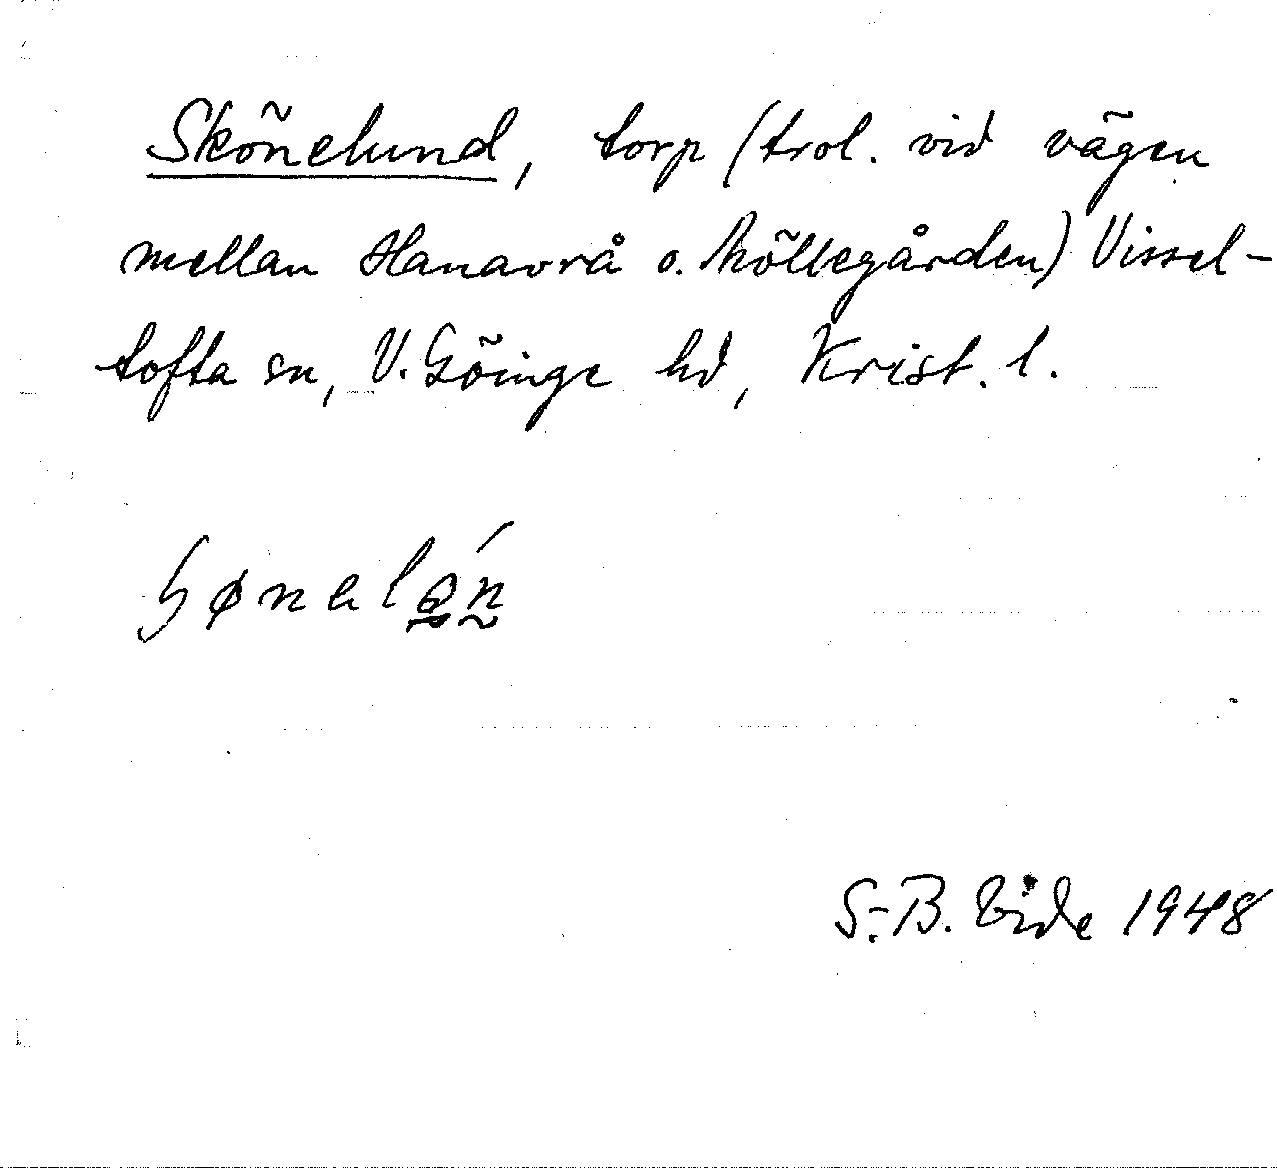 Skönelund, torp (trol. vid vägen
mellan Hanavrå o. Möllegården) Vissel-
tofta sn, V. Göinge hd, Krist. l.
S.-B. Vide 1948